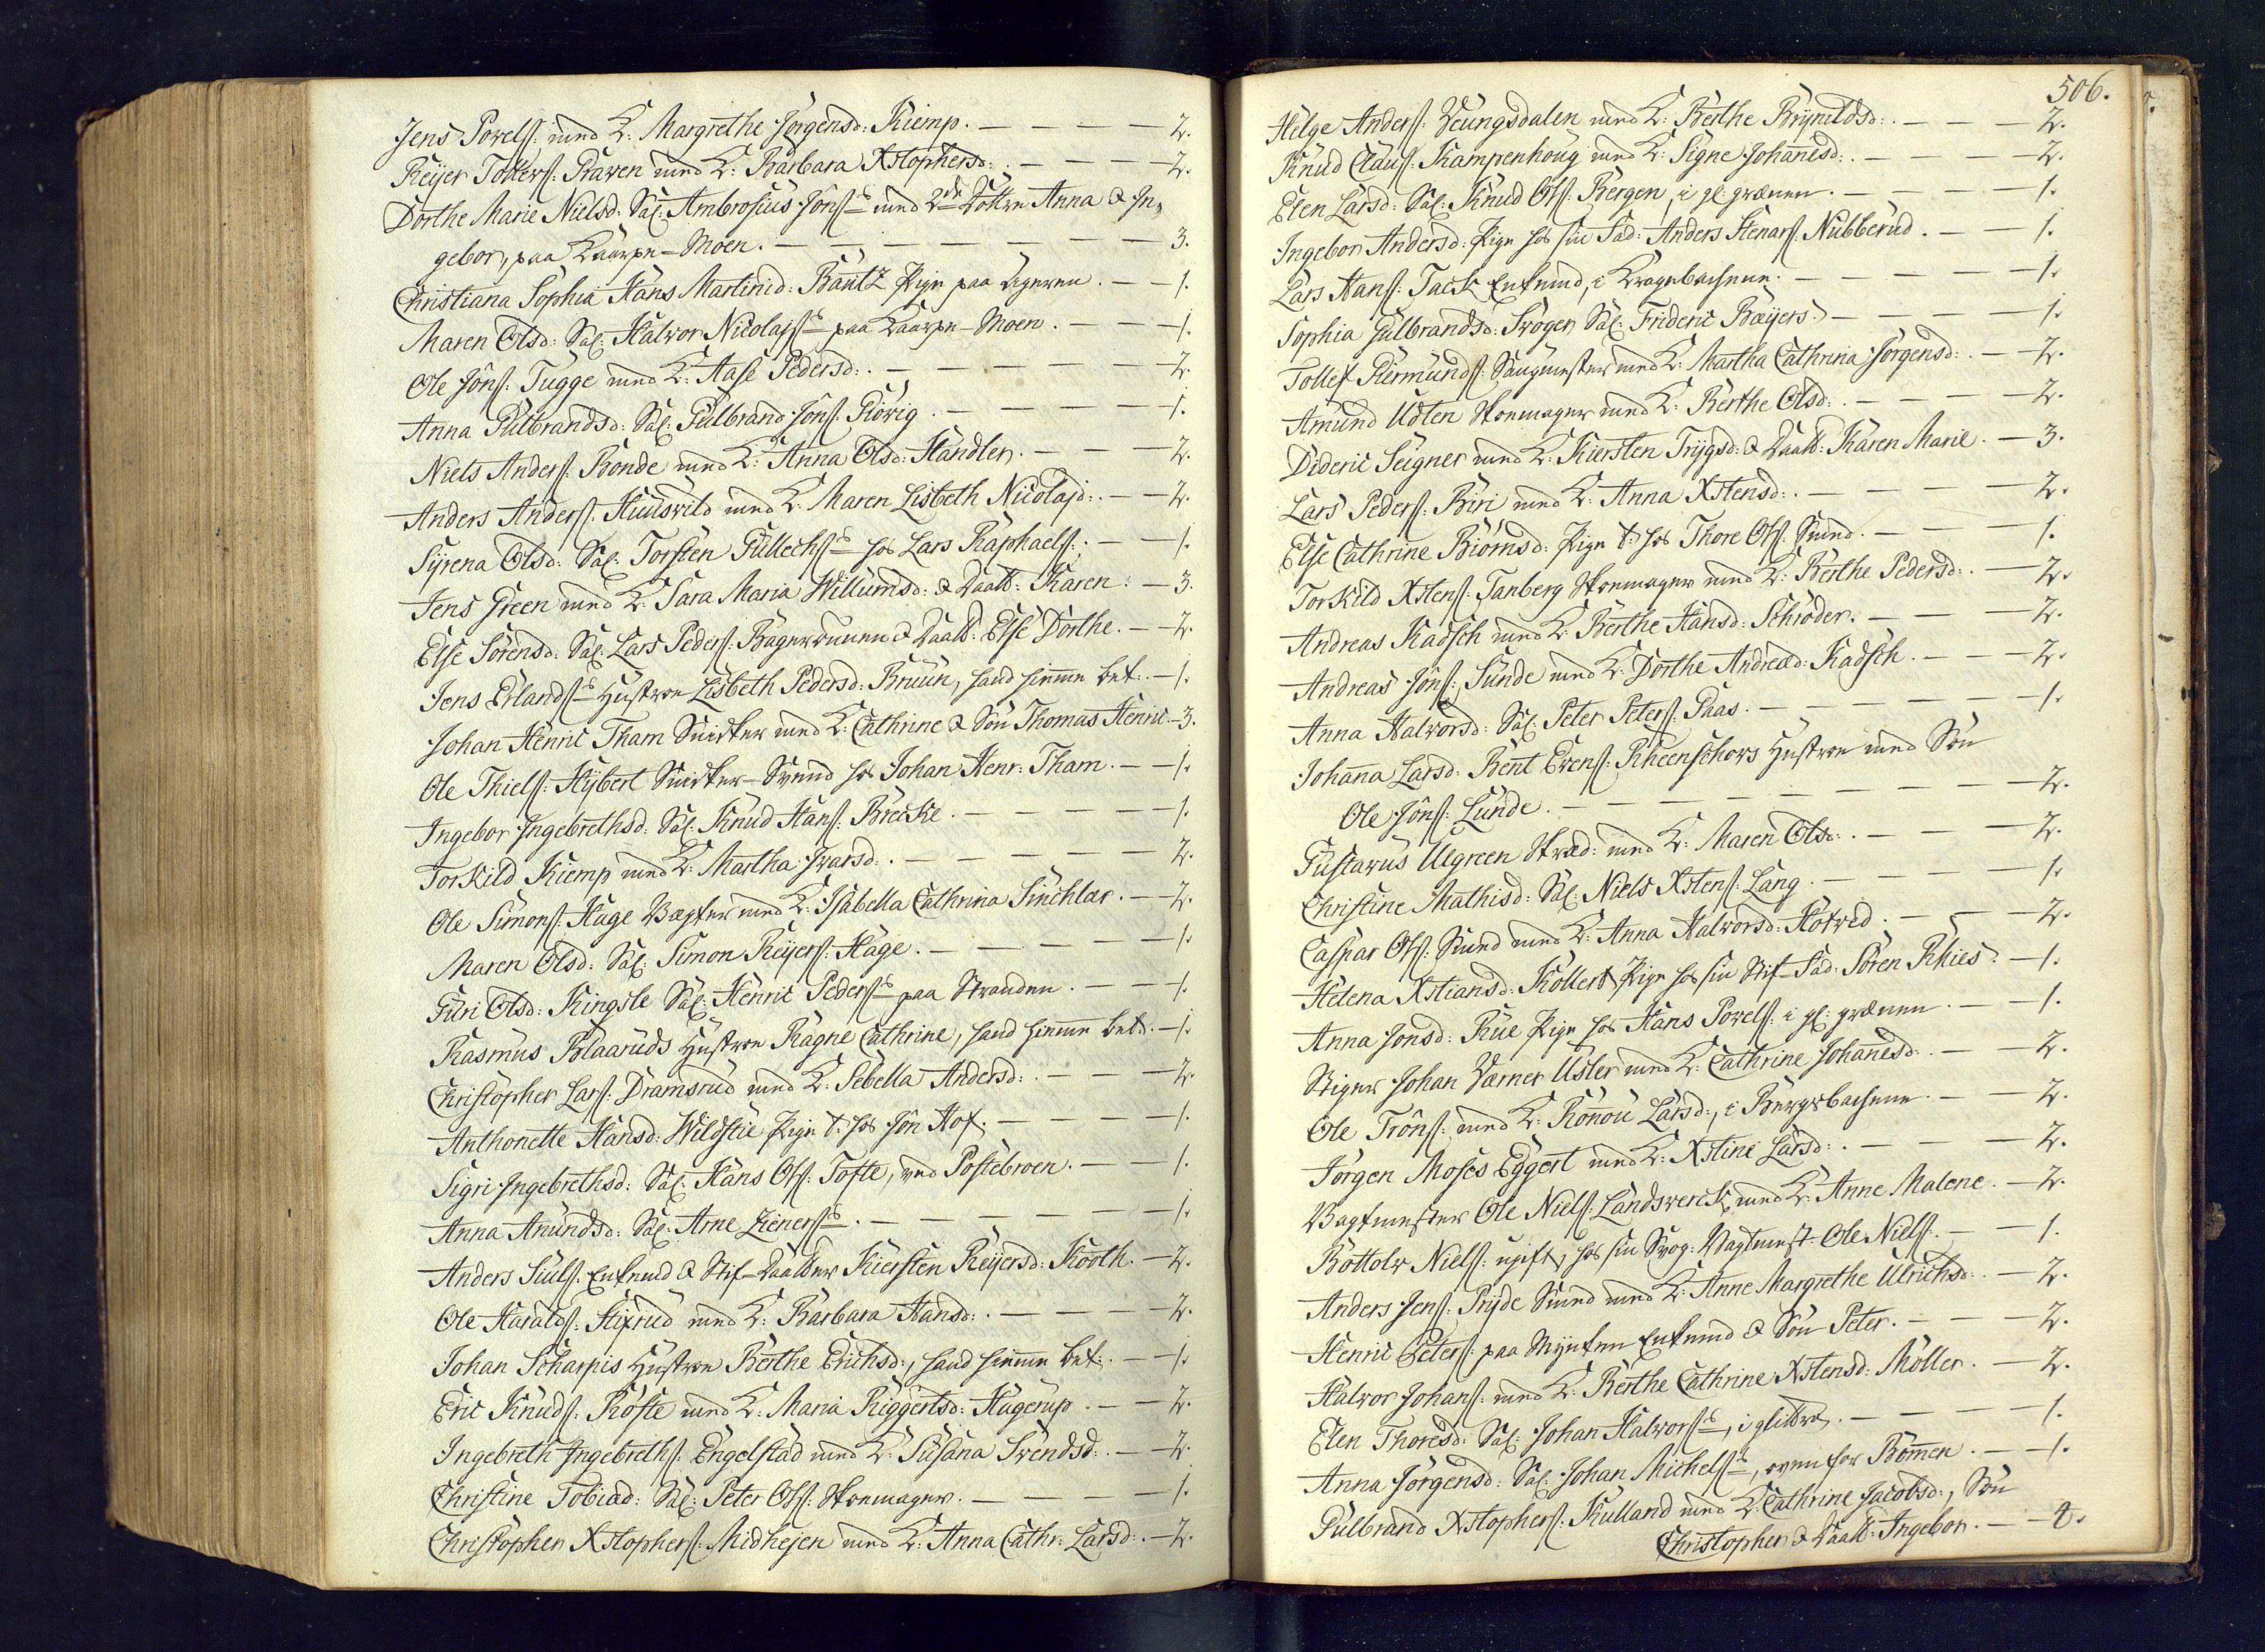 Jens Povels: med K: Margrethe Jörgensd: Kiemp. — — — — 2.
Reyer Tollevs: Praven med K: Barbara Xstophersd: . — — — — 2.
Dorthe Marie Nielsd: Sal: Ambrosius Jöns: med 2de Döttre Anna & In,
gebor, paa Kaarpe-Moen. — — — — — — — 3.
Christiana Sophia Hans Martinid: Bautz Pige paa Ageren. — — 1.
Maren Olsd: Sal: Halvor Nicolajs: paa Kaarpe-Moen. — — — 1.
Ole Jöns: Tugge med K: Aase Pedersd: . — — — — — 2.
Anna Gulbrandsd: Sal: Gulbrand Jöns: Giörig. — — — — 1.
Niels Anders: Bonde med K: Anna Olsd: Handler. — — — 2.
Anders Anders: Huusvild med K: Maren Lisbeth Nicolajd: . — — 2.
Syrena Olsd: Sal: Torsten Gullechs: hos Lars Raphaels: . — — 1.
Jens Green med K: Sara Maria Willumsd: & Daatt: Karen: — 3.
Else Sörensd: Sal: Lars Peders: & Daatt: Else Dorthe. — — 2.
Jens Erlands: Hustroe Lisbeth Pedersd: Bruun, hand hiemme bet: . — 1.
Johan Henric Tham Snidker med K: Cathrine & Sön Thomas Henric — 3.
Ole Thiels: Hybert Snidker-Svend hos Johan Henr: Tham. — — 1.
Ingebor Ingebrethsd: Sal: Knud Hans: Brecke. — — — — 1.
Torkild Kiemp med K: Martha Ivarsd: . — — — — — 2.
Ole Simons: Hage Vægter med K: Isabella Cathrina Sinchlar. — — 2.
Maren Olsd: Sal: Simon Reyers: Hage. — — — — — 1.
Guri Olsd: Kingsle Sal: Henric Peders: paa Stranden. — — — 1.
Rasmus Blaaruds Hustroe Ragne Cathrine, hand hiemme bet: . — 1.
Christopher Lars: Dramsrud med K: Sebella Andersd: . — — — 2.
Anthonette Hansd: Wildstie Pige t: hos Jön Hof. — — — — 1.
Sigri Ingebrethsd: Sal: Hans Ols: Tofte, ved Postebroen. — — 1.
Anna Anundsd: Sal: Arne Zieners: . — — — — — — 1.
Anders Siuls: Enkemd & Stif-Daatter Kiersten Reyersd: Kooth. — 2.
Ole Haralds: Hifrud med K: Barbara Hansd: . — — — — 2.
Johan Scharpis Hustroe Berthe Erichsd:, hand hiemme bet: . — — 1.
Eric Knuds: Kofte med K: Maria Riggertsd: Hagerup. — — — 2.
Ingebreth Ingebreths: Engelstad med K: Susana Svendsd: . — — 2.
Christine Tobiad: Sal: Peter Ols: Skoemager. — — — — 1.
Christopher Xstophers: Midhejen med K: Anna Cathr: Larsd: . — 2.
506.
Helge Anders: Veungsdalen med K: Berthe Bryneldsd: . — — — 2.
Knud Claus: Kampenhoug med K: Signe Johanesd: . — — — — 2.
Elen Larsd: Sal: Knud Ols: Bergen, i gl: grænen. — — — — 1.
Ingebor Andersd: Pige hos sin Fad: Anders Stenars: Nubberud. — — 1.
Lars Hans: Tack Enkemd, i Kragsbachene. — — — — — 1.
Sophia Gulbrandsd: Svoger Sal: Frideric Bæyers. — — — — 1.
Tollef Giermunds: Saugmester med K: Martha Cathrina Jörgensd: . — 2.
Amund Udten Skoemager med K: Berthe Olsd: . — — — — 2.
Dideric Seigner med K: Kiersten Trygsd: & Daatt: Karen Marie. — 3.
Lars Peders: Biri med K: Anna Xstensd: . — — — — — 2.
Else Cathrine Biörnsd: Pige t: hos Thore Ols: Smed. — — — 1.
Torkild Xstens: Tanberg Skoemager med K: Berthe Pedersd: . — 2.
Andreas Kadsch med K: Berthe Hansd: Schröder. — — — 2.
Andreas Jöns: Sunde med K: Dorthe Andread: Kadsch. — — — 2.
Anna Halvorsd: Sal: Peter Peters: Paas. — — — — — 1.
Johanna Larsd: Bent Evens: Rheenschors Hustroe med Sön
Ole Jöns: Lunde. — — — — — — — 2.
Gustavus Ulgreen Skræd: med K: Maren Olsd: . — — — — 2.
Christine Mathisd: Sal: Niels Xstens: Lang. — — — — 1.
Caspar Ols: Smed med K: Anna Halvorsd: Hotved. — — — 2.
Helena Xstiansd: Kollert Pige hos sin Stif-Fad: Sören Rhies. — 1.
Anna Jonsd: Rue Pige hos Hans Povels: i gl: grænen. — — 1.
Stiger Johan Værner Usler med K: Cathrine Johanesd: . — — 2.
Ole Tröns: med K: Rönou Larsd:, i Bergsbachene. — — — 2.
Jörgen Moses Eggert med K: Xstine Larsd: . — — — — 2.
Vagtmester Ole Niels: Landsverck med K: Anne Malene. — 2.
Bottolv Niels: ugift, hos sin Svog: Vagtmest: Ole Niels: . — — 1.
Anders Jens: Pryde Smed med K: Anne Margrethe Ulrichsd: . — 2.
Henric Peters: paa Mynten Enkemd & Sön Peter. — — — 2.
Halvor Johans: med K: Berthe Cathrine Xstensd: Möller. — 2.
Elen Thoresd: Sal: Johan Halvors:, i glittre. — — — — 1.
Anna Jörgensd: Sal: Johan Michels:, oven for Bommen. — — 1.
Gulbrand Xstophers: Kulland med K: Cathrine Jacobsd:, Sön
Christopher & Daatt: Ingebor. — — 4.